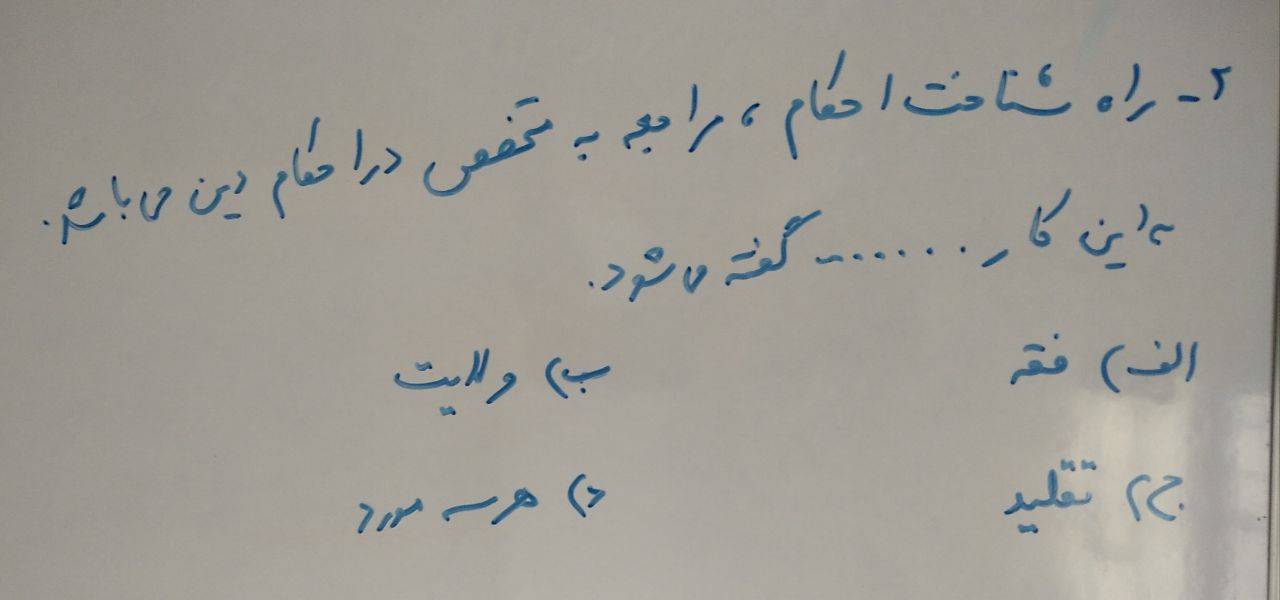 ۲- راه شناخت احکام، مراجعه به متخصص در احکام دین می باشد.
به این کار ........ گفته می شود.
الف) فقه ب) ولایت
ج) تقلید د) هر سه مورد